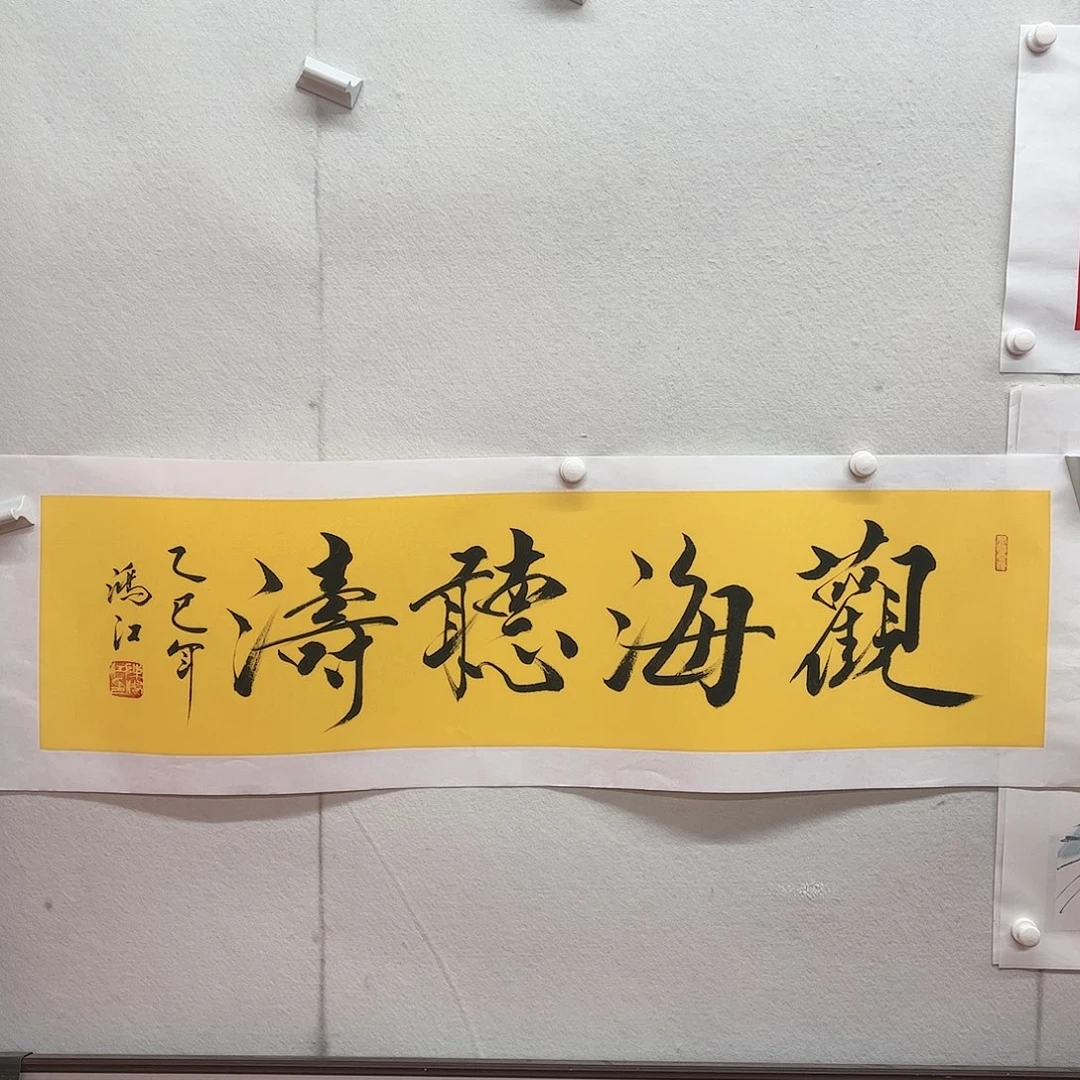 觀海聽濤
乙巳年
鴻江